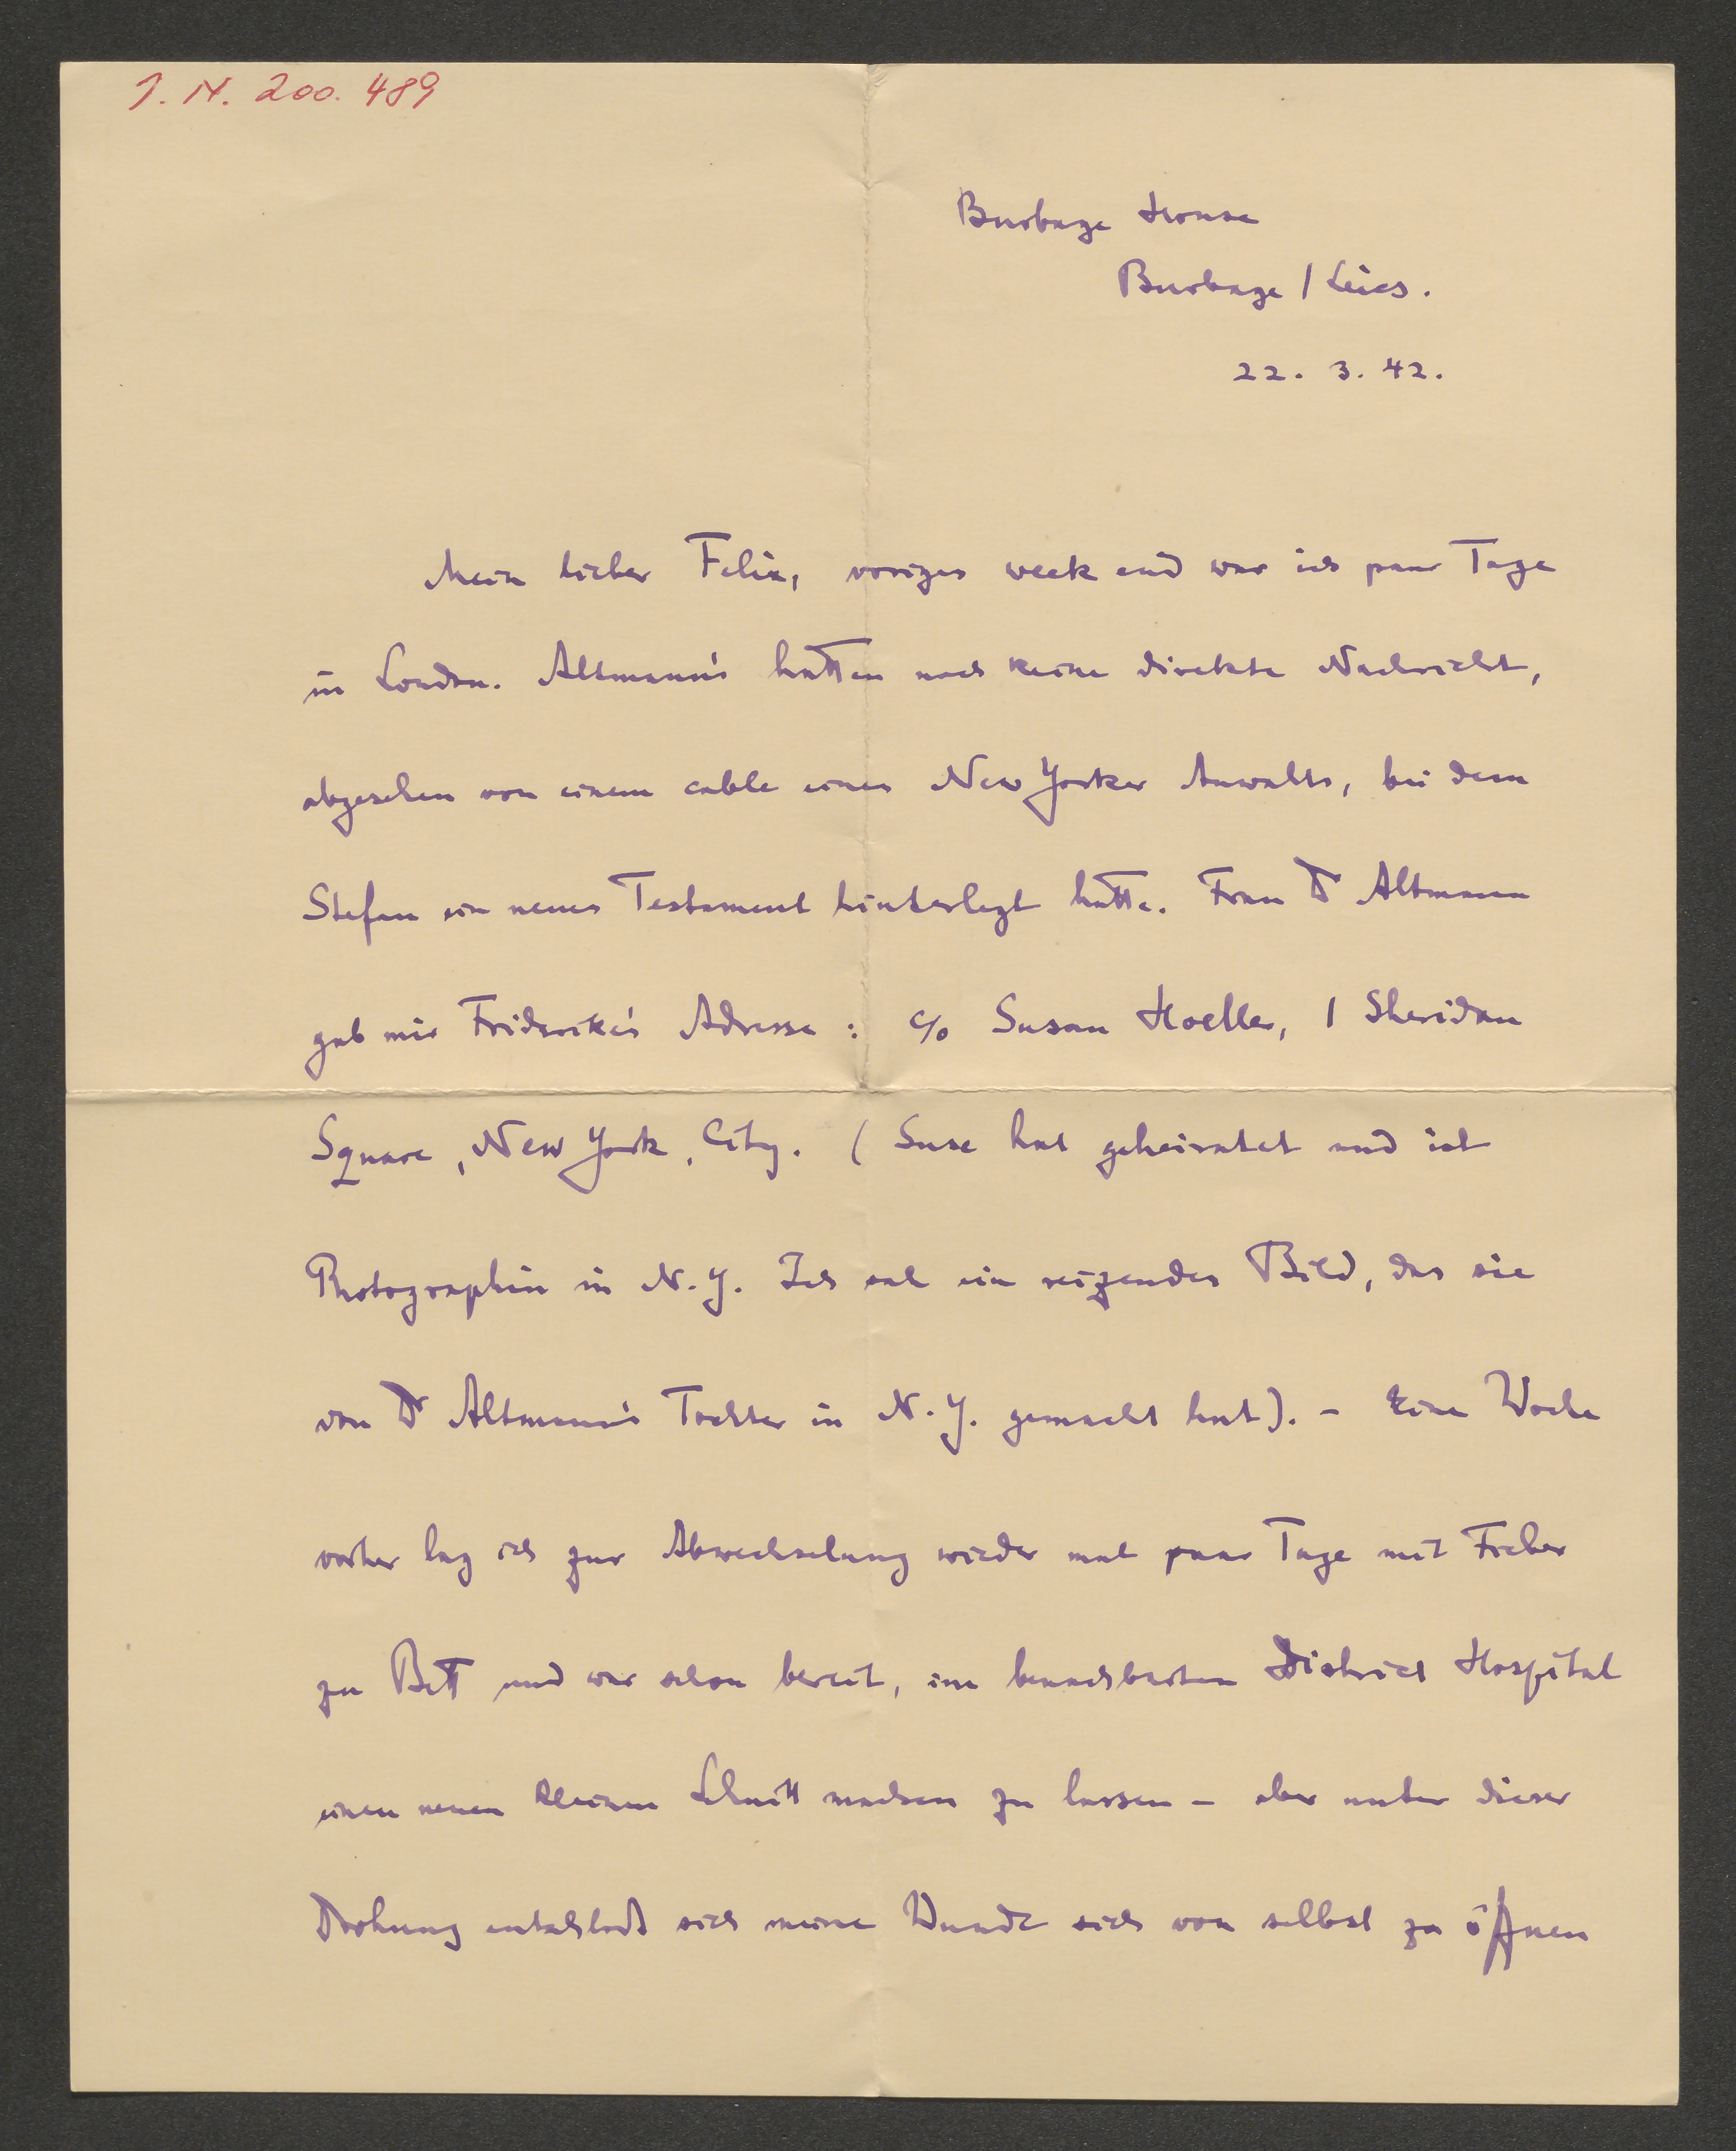 J. N. 200.489
Burbage House
Burbage / Leics.
22. 3. 42.
Mein lieber Felix, voriges week end war ich paar Tage
in London. Altmann's hatten noch keine direkte Nachricht,
abgesehen von einem cable eines New Yorker Anwalts, bei dem
Stefan ein neues Testament hinterlegt hatte. Frau Dr Altmann
gab mir Friderike's Adresse: c/o Susan Hoeller, 1 Sheridan
Square, New York, City. (Suse hat geheiratet und ist
Photographin in N.Y. Ich sah ein reizendes Bild, das sie
von Dr Altmann's Tochter in N.Y. gemacht hat). - Eine Woche
vorher lag ich zur Abwechselung wieder mal paar Tage mit Fieber
zu Bett und war schon bereit, im benachbarten District Hospital
einen neuen kleinen Schnitt machen zu lassen - aber unter dieser
Drohung entschloß sich meine Wunde sich von selbst zu öffnen